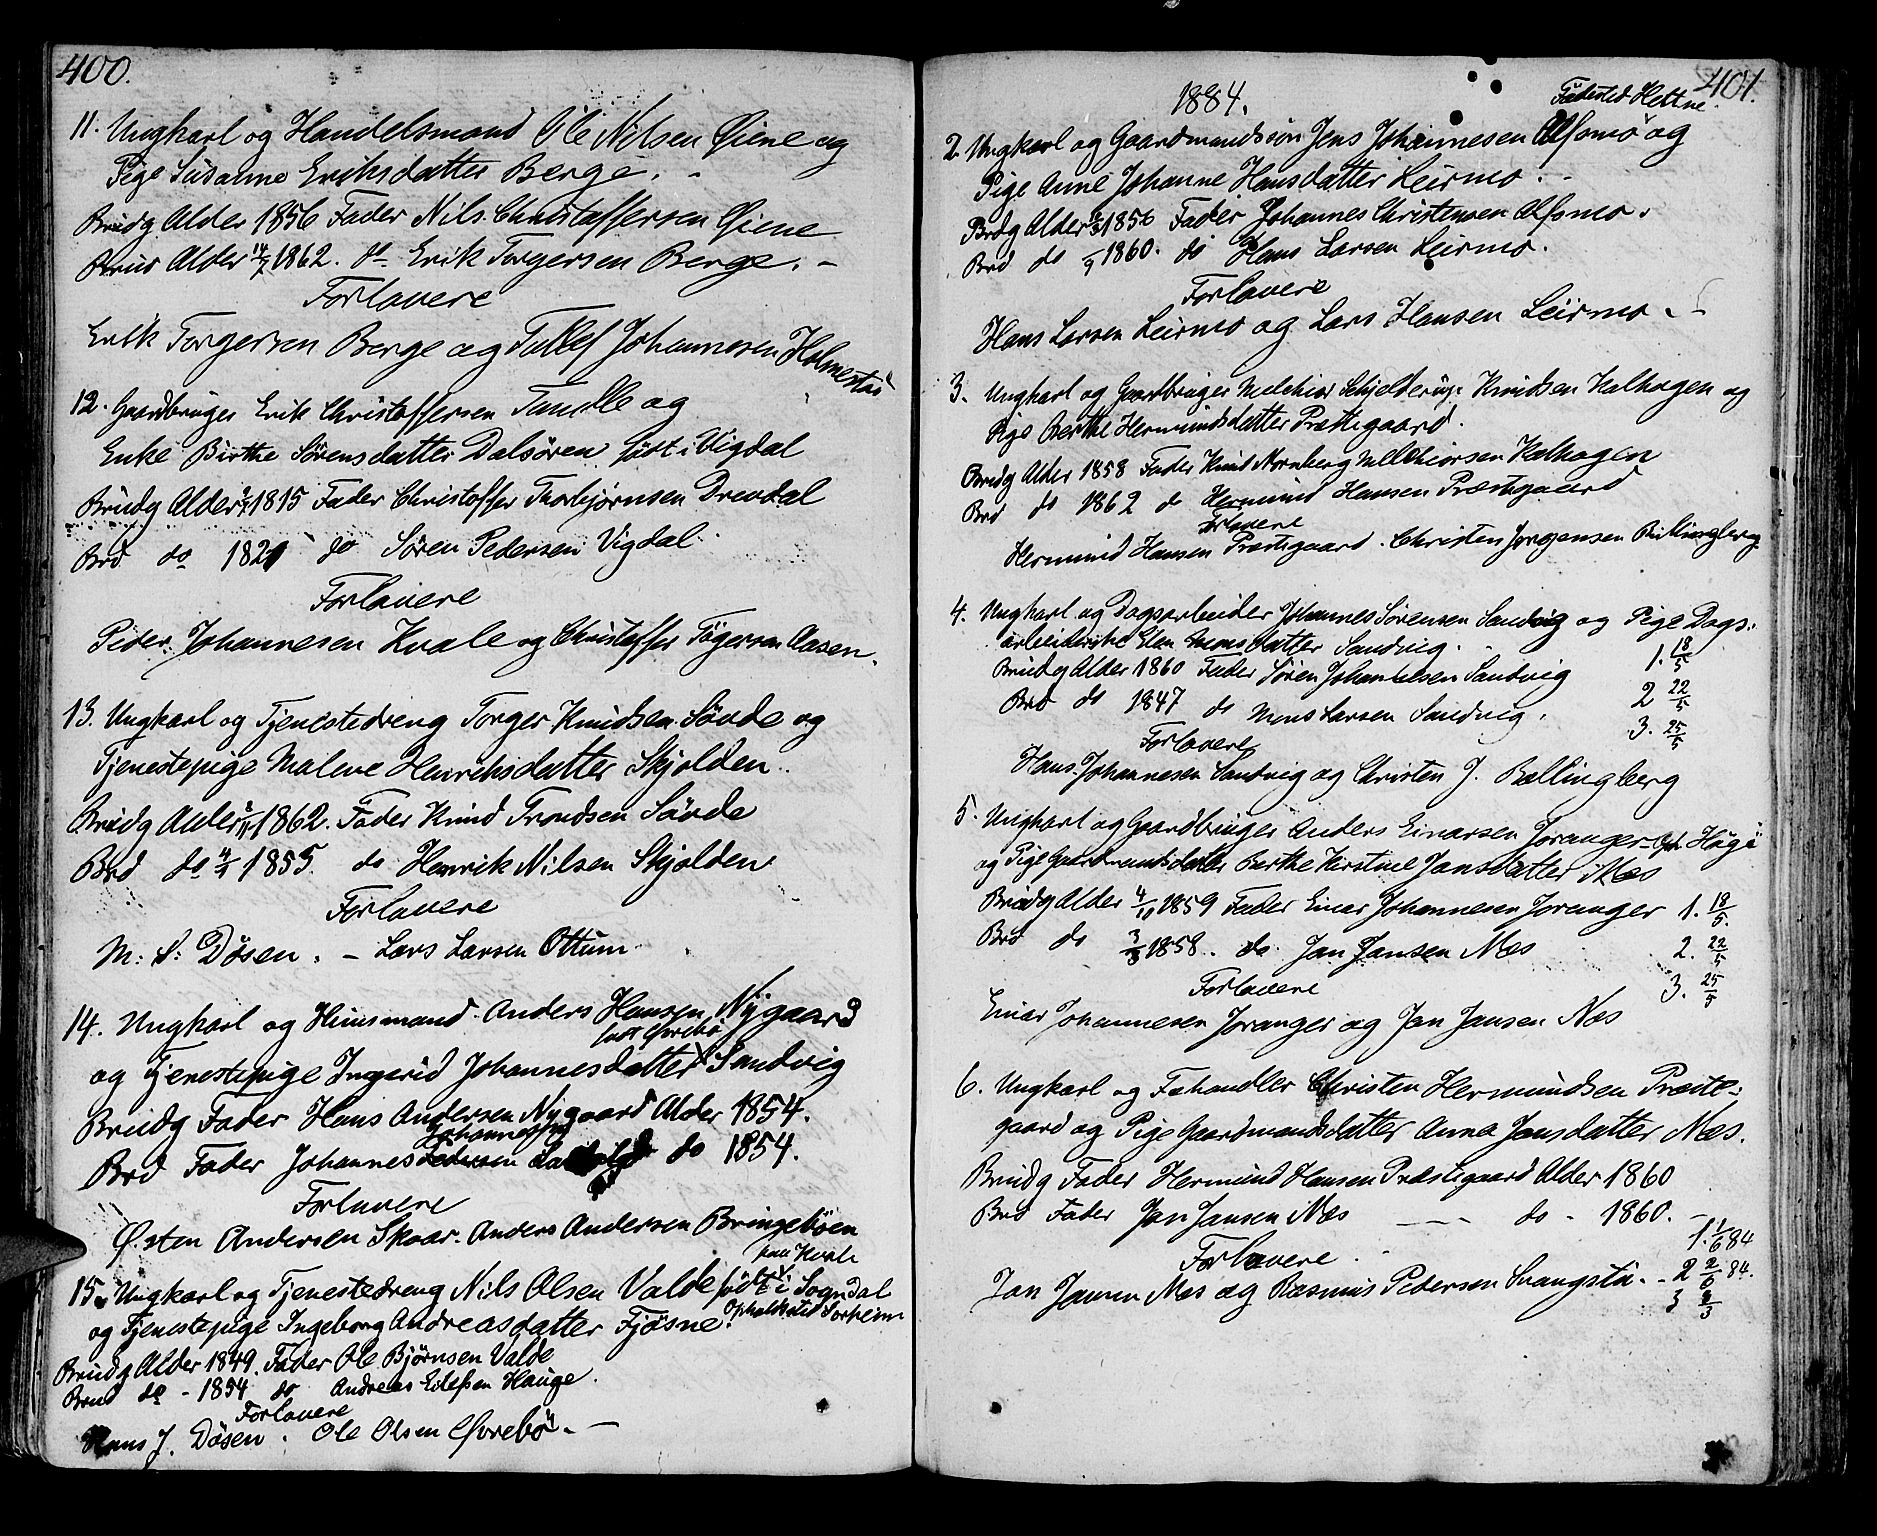 400.
11. Ungkarl og Handelsmand Ole Nilsen Øiene og
Pige Susanne Eriksdatter Berge. -
Brudg Alder 1856 Fader Nils Christoffersen Øiene
Brud Alder 14/7 1862. do Erik Torgersen Berge. -
Forlovere
Erik Torgersen Berge og Tollef Johannesen Holmestad
12. Gaardbruger Erik Christoffersen Tandle og
Enke Birthe Sørensdatter Dalsøren født i Vigdal
Brudg Alder 1815 Fader Christoffer Thorbjørnsen Drevdal
Brd do 1821 do Søren Pedersen Vigdal
Forlovere
Peder Johannesen Kvale og Christoffer Tøgersen Aasen.
13. Ungkarl og Tjenestedreng Torger Knudsen Søvde og
Tjenestepige Malene Henriksdatter Skjolden.
Brudg Alder 1862. Fader Knud Trondsen Søvde
Brd do 1855. do Henrik Nilsen Skjolden
Forlovere
M: S: Døsen. - Lars Larsen Ottum
14. Ungkarl og Huusmand Anders Hansen Nygaard
født Øvrebø
og Tjenestepige Ingerid Johannesdatter Sandvig
Brudg Fader Hans Andersen Nygaard Alder 1854.
Brd Fader Johannes Johannessen do 1854.
Forlovere
Østen Andersen Skaar. Anders Andersen Bringebøen
paa Kvale
15. Ungkarl og Tjenestedreng Nils Olsen Valde født i Sogndal
og Tjenestepige Ingeborg Andreasdatter Fjøsne. Opholdssted Sorheim
Brudg Alder 1849. Fader Ole Bjørnsen Valde
Brud do - 1854 do Andreas Eilefsen Hauge.
Forlovere
Hans J. Døsen. Ole Olsen Øvrebø. -
401.
1884.
Fødested Hettne.
2. Ungkarl og Gaardmandssøn Jens Johannesen Alfsmo og
Pige Anne Johanne Hansdatter Leirmo. -
Brdg Alder 1856 Fader Johannes Christensen Alfsmo.
Brd do 1860. do Hans Larsen Leirmo.
Forlovere
Hans Larsen Leirmo og Lars Hansen Leirmo. -
3. Ungkarl og Gaardbruger Melchior Schjelderup Knudsen Kalhagen og
Pige Berthe Hermundsdatter Præstegaard.
Brudg Alder 1858 Fader Knud Nornberg Melchiorsen Kalhagen
Brd do 1862 do Hermund Hansen Præstegaard
Forlovere
Hermund Hansen Præstegaard. Christen Jørgensen Bollingberg
4. Ungkarl og Dagsarbeider Johannes Sørensen Sandvig og Pige Dags-
arbeiderske Elen Monsdatter Sandvig.
Brudg Alder 1860 Fader Søren Johannesen Sandvig 1. 18/5
Brd do 1847 do Mons Larsen Sandvig. 2 22/5
3. 25/5
Forlovere
Hans Johannesen Sandvig og Christen J. Bollingberg
5. Ungkarl og Gaardbruger Anders Einarsen Joranger - Oph Høgi
og Pige Gaardmandsdatter Berthe Kirstine Jansdatter Næs
Brudg Alder 4/10 1859 Fader Einar Johannesen Joranger 1. 18/5.
Brd do 3/3 1858. do Jan Jansen Næs 2. 22/5
Forlovere 3. 25/5
Einar Johannesen Joranger og Jan Jansen Næs
6. Ungkarl og Fæhandler Christen Hermundsen Præste-
gaard og Pige Gaardmandsdatter Anna Jansdatter Næs.
Brudg Fader Hermund Hansen Præstegaard Alder 1860
Brd Fader Jan Jansen Næs - - - do - 1860. -
1. 1/6 84
Forlovere
Jan Jansen Næs og Rasmus Pedersen Svangstu. - 2 2/6 84.
3